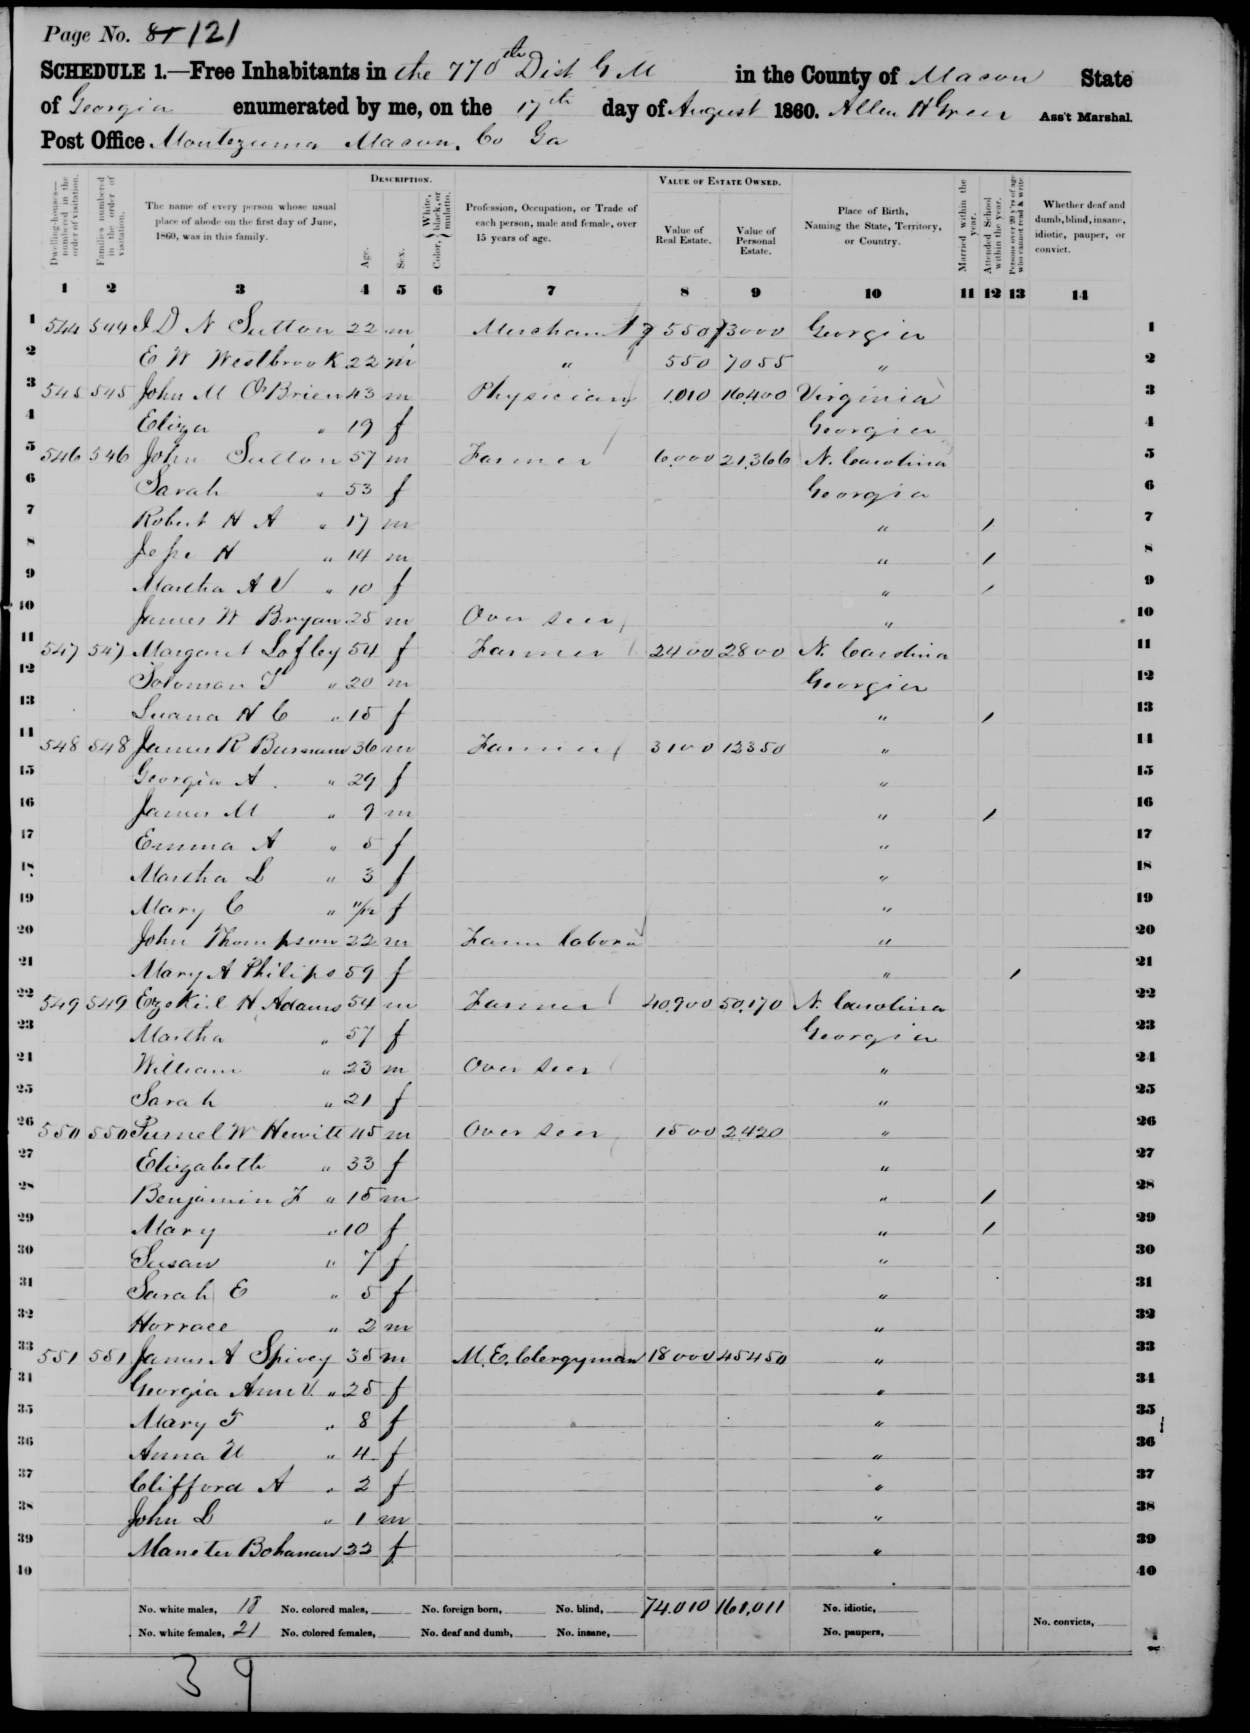 Page No. 81 121
SCHEDULE 1.—Free Inhabitants in the 770th Dist G M in the County of Macon State
of Georgia enumerated by me, on the 17th day of August 1860. Allen H Greer Ass't Marshal.
Post Office Montezuma Macon. Co Ga
DESCRIPTION. VALUE OF ESTATE OWNED.
Dwelling-houses—numbered in the order of visitation. Families numbered in the order of visitation. The name of every person whose usual place of abode on the first day of June, 1860, was in this family. Age. Sex. Color, White, black, or mulatto. Profession, Occupation, or Trade of each person, male and female, over 15 years of age. Value of Real Estate. Value of Personal Estate. Place of Birth, Naming the State, Territory, or Country. Married within the year. Attended School within the year. Persons over 20 y'rs of age who cannot read & write. Whether deaf and dumb, blind, insane, idiotic, pauper, or convict.
1 2 3 4 5 6 7 8 9 10 11 12 13 14
1 544 544 J D N Sutton 22 m Merchant 550 13000 Georgia 1
2 E W Westbrook 22 m " 550 7055 " 2
3 545 545 John M OBrien 43 m Physician 1.010 16400 Virginia 3
4 Eliza " 19 f Georgia 4
5 546 546 John Sutton 57 m Farmer 6,000 21,366 N. Carolina 5
6 Sarah " 53 f Georgia 6
7 Robert H A " 17 m " / 7
8 Jesse H " 14 m " / 8
9 Martha A V " 10 f " / 9
10 James W Bryan 25 m Over seer " 10
11 547 547 Margaret Lofley 54 f Farmer 2400 2800 N. Carolina 11
12 Soloman T " 20 m Georgia 12
13 Luana H C " 15 f " / 13
14 548 548 James R Busman 36 m Farmer 3100 12350 " 14
15 Georgia A. " 29 f " 15
16 James M " 9 m " / 16
17 Emma A " 5 f " 17
18 Martha L " 3 f " 18
19 Mary C " 11/12 f " 19
20 John Thompson 22 m Farm labora " 20
21 Mary A Philips 59 f " / 21
22 549 549 Ezekiel H Adams 54 m Farmer 40,900 50,170 N. Carolina 22
23 Martha " 57 f Georgia 23
24 William " 23 m Over seer " 24
25 Sarah " 21 f " 25
26 550 550 Purnel W Hewitt 45 m Over seer 1500 2,420 " 26
27 Elizabeth " 33 f " 27
28 Benjamin F " 15 m " / 28
29 Mary " 10 f " / 29
30 Susan " 7 f " 30
31 Sarah E " 5 f " 31
32 Horrace " 2 m " 32
33 551 551 James A Spivey 35 m M. E. Clergyman 18000 45450 " 33
34 Georgia Ann V. " 25 f " 34
35 Mary T " 8 f " 35
36 Anna U " 4 f " 36
37 Clifford A " 2 f " 37
38 John L " 1 m " 38
39 Bohanan 22 f " 39
40 40
No. white males, 18 No. colored males, No. foreign born, No. blind, 74,010 161,011 No. idiotic, No. convicts,
No. white females, 21 No. colored females, No. deaf and dumb, No. insane, No. paupers,
39